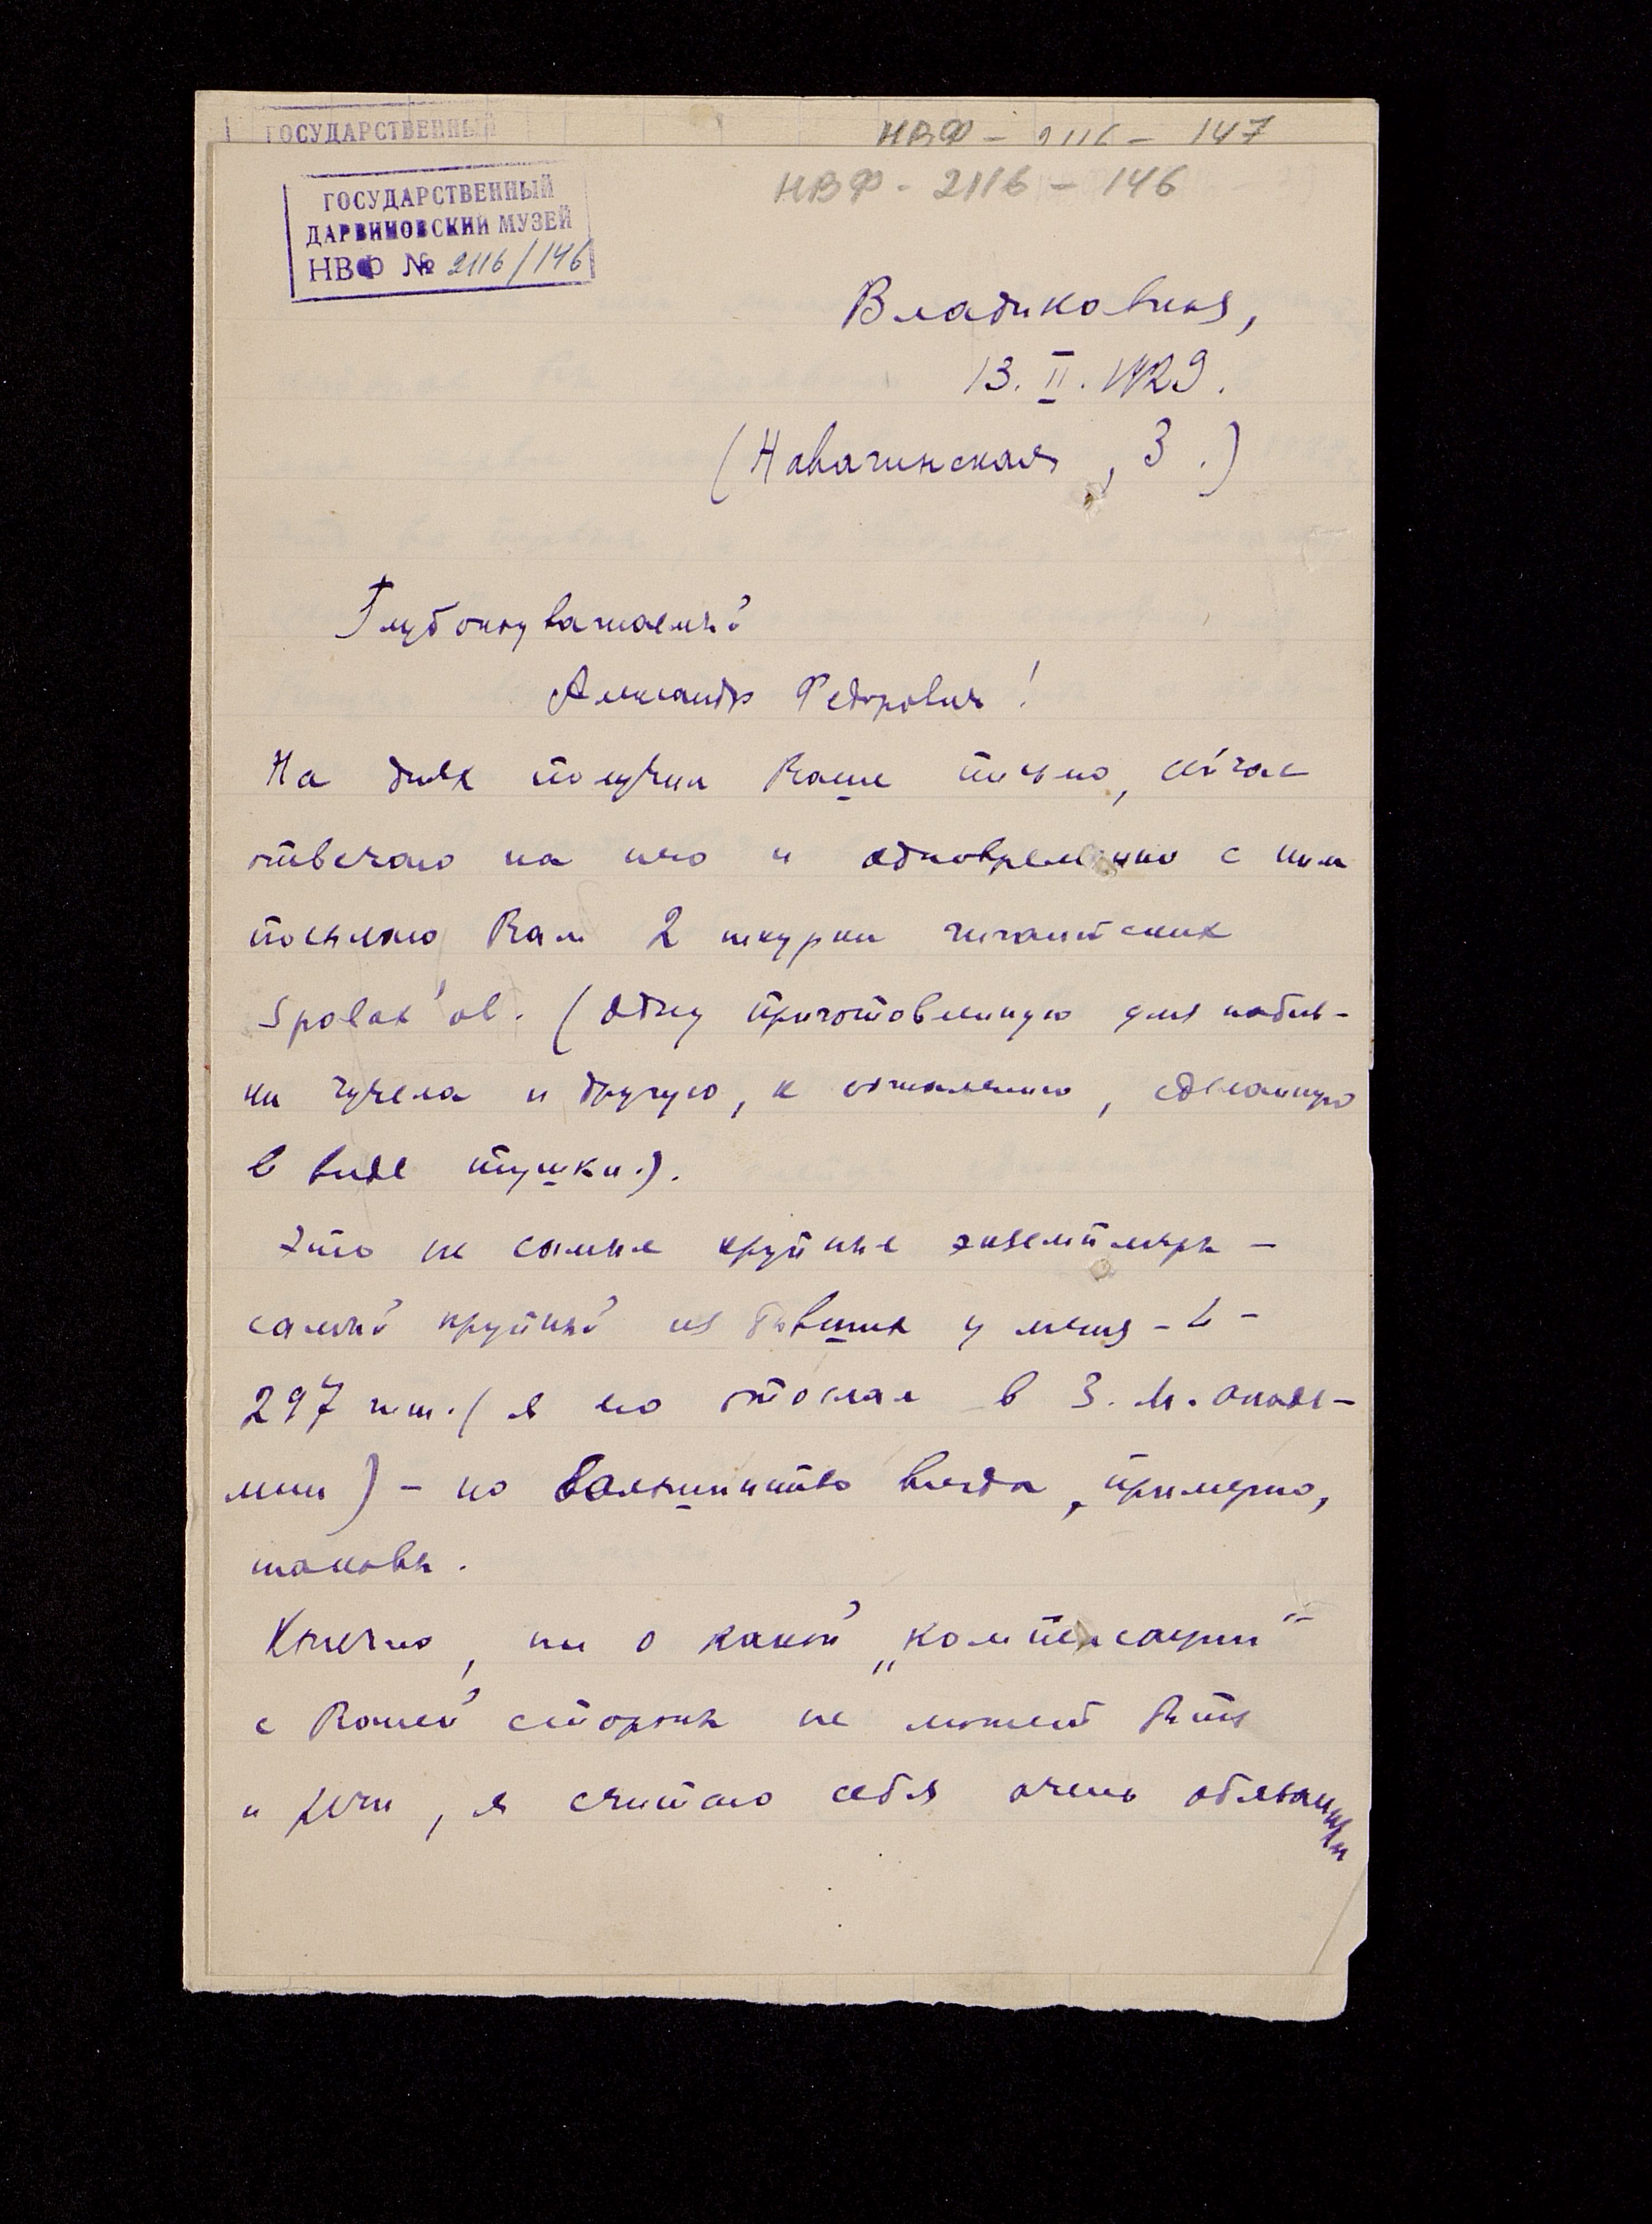 ГОСУДАРСТВЕННЫЙ
НВФ - 2116 - 147
НВФ - 2116 - 146
ГОСУДАРСТВЕННЫЙ
ДАРВИНОВСКИЙ МУЗЕЙ
НВФ № 2116/146
Владикавказ,
13. II. 1929.
(Навагинская, 3.)
Глубокоуважаемый
Александр Федорович!
На днях получил Ваше письмо, сейчас
отвечаю на него и одновременно с ним
посылаю Вам 2 шкурки гигантских
Spalax'ов. (одну приготовленную для набив-
ки чучела и другую, к сожалению, сделанную
в виде тушки.).
Это не самые крупные экземпляры -
самый крупный из бывших у меня - L -
297 mm. (я его отослал в З. М. Акаде-
мии) - но большинство вида, примерно,
таковы.
Конечно, ни о какой „компенсации“
с Вашей стороны не может быть
и речи, я считаю себя очень обязанным